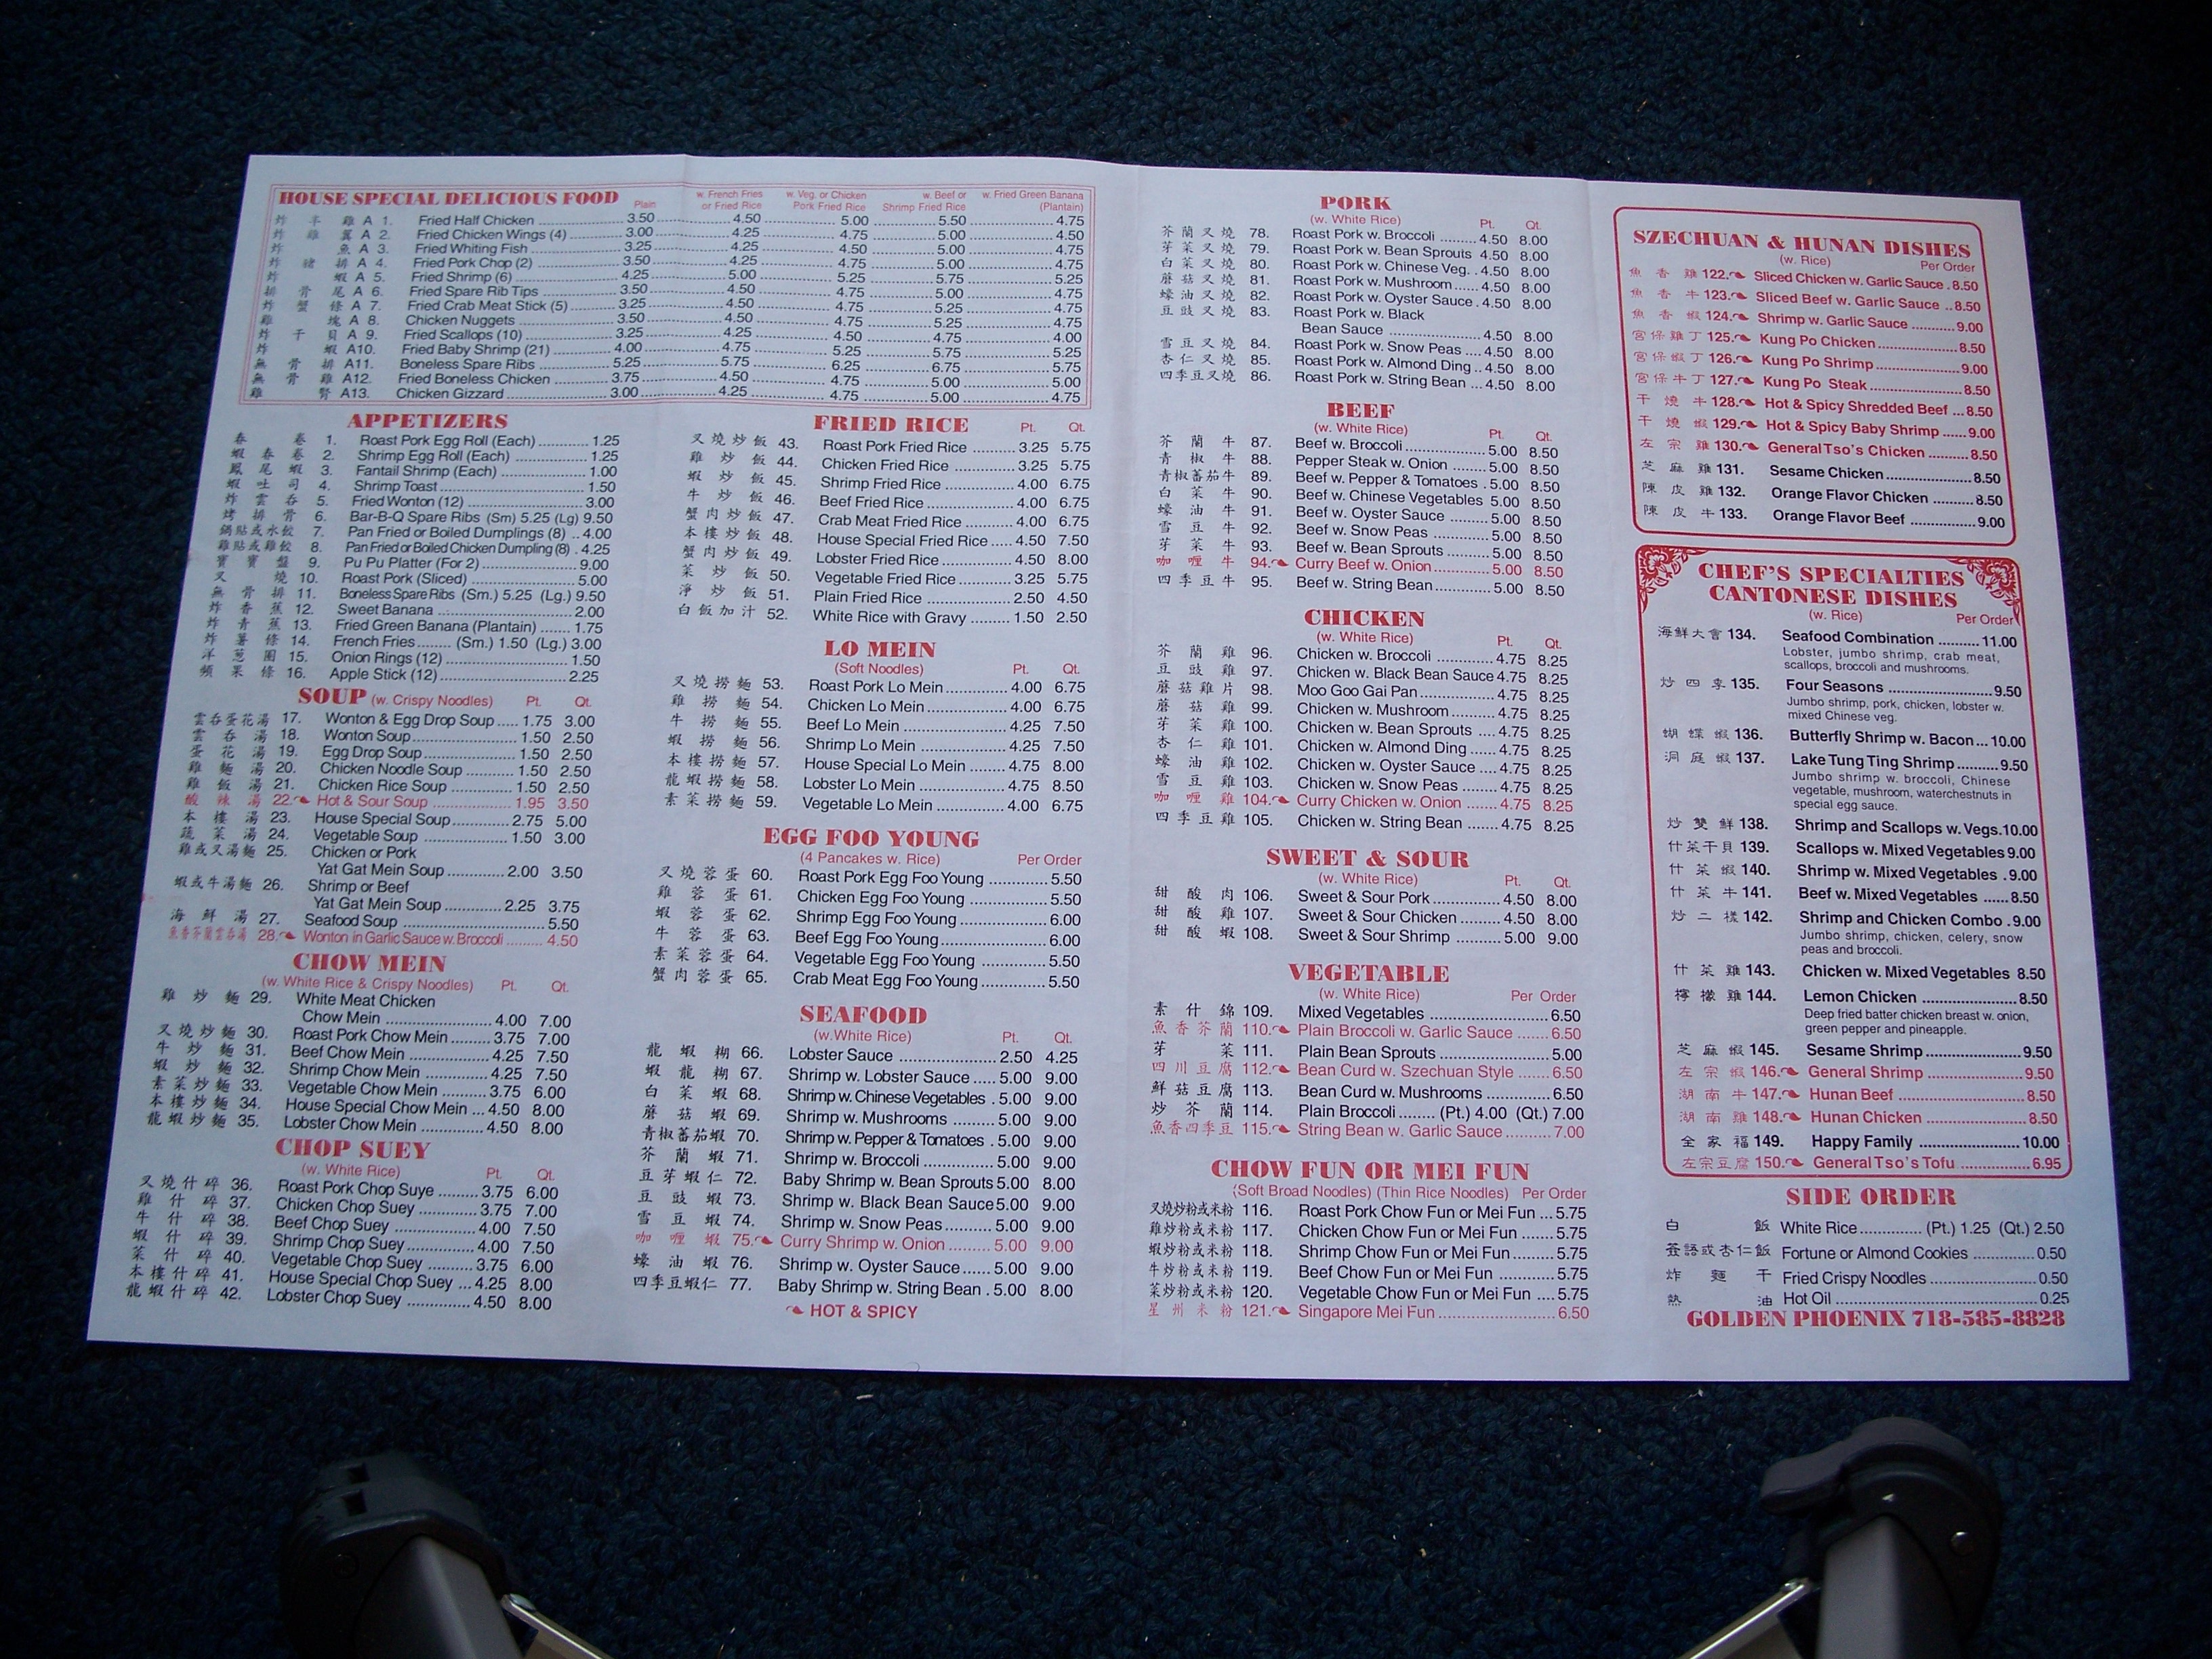 HOUSE SPECIAL DELICIOUS FOOD Plain w. French Fries or Fried Rice w. Veg. or Chicken Pork Fried Rice w. Beef or Shrimp Fried Rice w. Fried Green Banana (Plantain)
炸半雞 A 1. Fried Half Chicken 3.50 4.50 5.00 5.50 4.75
炸雞翼 A 2. Fried Chicken Wings (4) 3.00 4.25 4.75 5.00 4.50
炸魚 A 3. Fried Whiting Fish 3.25 4.25 4.50 5.00 4.75
炸豬排 A 4. Fried Pork Chop (2) 3.50 4.25 4.75 5.00 4.75
炸蝦 A 5. Fried Shrimp (6) 4.25 5.00 5.25 5.75 5.25
排骨尾 A 6. Fried Spare Rib Tips 3.50 4.50 4.75 5.00 4.75
炸蟹條 A 7. Fried Crab Meat Stick (5) 3.25 4.50 4.75 5.25 4.75
雞塊 A 8. Chicken Nuggets 3.50 4.50 4.75 5.25 4.75
炸干貝 A 9. Fried Scallops (10) 3.25 4.25 4.50 4.75 4.00
炸蝦 A10. Fried Baby Shrimp (21) 4.00 4.75 5.25 5.75 5.25
無骨排 A11. Boneless Spare Ribs 5.25 5.75 6.25 6.75 5.75
無骨雞 A12. Fried Boneless Chicken 3.75 4.50 4.75 5.00 5.00
雞腎 A13. Chicken Gizzard 3.00 4.25 4.75 5.00 4.75
APPETIZERS
春卷 1. Roast Pork Egg Roll (Each) 1.25
蝦春卷 2. Shrimp Egg Roll (Each) 1.25
鳳尾蝦 3. Fantail Shrimp (Each) 1.00
蝦吐司 4. Shrimp Toast 1.50
炸雲吞 5. Fried Wonton (12) 3.00
烤排骨 6. Bar-B-Q Spare Ribs (Sm) 5.25 (Lg) 9.50
鍋貼或水餃 7. Pan Fried or Boiled Dumplings (8) 4.00
雞貼或雞餃 8. Pan Fried or Boiled Chicken Dumpling (8) 4.25
寶寶盤 9. Pu Pu Platter (For 2) 9.00
叉燒 10. Roast Pork (Sliced) 5.00
無骨排 11. Boneless Spare Ribs (Sm.) 5.25 (Lg.) 9.50
炸香蕉 12. Sweet Banana 2.00
炸青蕉 13. Fried Green Banana (Plantain) 1.75
炸薯條 14. French Fries (Sm.) 1.50 (Lg.) 3.00
洋葱圈 15. Onion Rings (12) 1.50
蘋果條 16. Apple Stick (12) 2.25
SOUP (w. Crispy Noodles) Pt. Qt.
雲吞蛋花湯 17. Wonton & Egg Drop Soup 1.75 3.00
雲吞湯 18. Wonton Soup 1.50 2.50
蛋花湯 19. Egg Drop Soup 1.50 2.50
雞麵湯 20. Chicken Noodle Soup 1.50 2.50
雞飯湯 21. Chicken Rice Soup 1.50 2.50
酸辣湯 22. Hot & Sour Soup 1.95 3.50
本樓湯 23. House Special Soup 2.75 5.00
蔬菜湯 24. Vegetable Soup 1.50 3.00
雞或叉湯麵 25. Chicken or Pork
Yat Gat Mein Soup 2.00 3.50
蝦或牛湯麵 26. Shrimp or Beef
Yat Gat Mein Soup 2.25 3.75
海鮮湯 27. Seafood Soup 5.50
魚香芥蘭雲吞湯 28. Wonton in Garlic Sauce w. Broccoli 4.50
CHOW MEIN
(w. White Rice & Crispy Noodles) Pt. Qt.
雞炒麵 29. White Meat Chicken
Chow Mein 4.00 7.00
叉燒炒麵 30. Roast Pork Chow Mein 3.75 7.00
牛炒麵 31. Beef Chow Mein 4.25 7.50
蝦炒麵 32. Shrimp Chow Mein 4.25 7.50
素菜炒麵 33. Vegetable Chow Mein 3.75 6.00
本樓炒麵 34. House Special Chow Mein 4.50 8.00
龍蝦炒麵 35. Lobster Chow Mein 4.50 8.00
CHOP SUEY
(w. White Rice) Pt. Qt.
叉燒什碎 36. Roast Pork Chop Suye 3.75 6.00
雞什碎 37. Chicken Chop Suey 3.75 7.00
牛什碎 38. Beef Chop Suey 4.00 7.50
蝦什碎 39. Shrimp Chop Suey 4.00 7.50
菜什碎 40. Vegetable Chop Suey 3.75 6.00
本樓什碎 41. House Special Chop Suey 4.25 8.00
龍蝦什碎 42. Lobster Chop Suey 4.50 8.00
FRIED RICE Pt. Qt.
叉燒炒飯 43. Roast Pork Fried Rice 3.25 5.75
雞炒飯 44. Chicken Fried Rice 3.25 5.75
蝦炒飯 45. Shrimp Fried Rice 4.00 6.75
牛炒飯 46. Beef Fried Rice 4.00 6.75
蟹肉炒飯 47. Crab Meat Fried Rice 4.00 6.75
本樓炒飯 48. House Special Fried Rice 4.50 7.50
蟹肉炒飯 49. Lobster Fried Rice 4.50 8.00
菜炒飯 50. Vegetable Fried Rice 3.25 5.75
淨炒飯 51. Plain Fried Rice 2.50 4.50
白飯加汁 52. White Rice with Gravy 1.50 2.50
LO MEIN
(Soft Noodles) Pt. Qt.
叉燒撈麵 53. Roast Pork Lo Mein 4.00 6.75
雞撈麵 54. Chicken Lo Mein 4.00 6.75
牛撈麵 55. Beef Lo Mein 4.25 7.50
蝦撈麵 56. Shrimp Lo Mein 4.25 7.50
本樓撈麵 57. House Special Lo Mein 4.75 8.00
龍蝦撈麵 58. Lobster Lo Mein 4.75 8.50
素菜撈麵 59. Vegetable Lo Mein 4.00 6.75
EGG FOO YOUNG
(4 Pancakes w. Rice) Per Order
叉燒蓉蛋 60. Roast Pork Egg Foo Young 5.50
雞蓉蛋 61. Chicken Egg Foo Young 5.50
蝦蓉蛋 62. Shrimp Egg Foo Young 6.00
牛蓉蛋 63. Beef Egg Foo Young 6.00
素菜蓉蛋 64. Vegetable Egg Foo Young 5.50
蟹肉蓉蛋 65. Crab Meat Egg Foo Young 5.50
SEAFOOD
(w. White Rice) Pt. Qt.
龍蝦糊 66. Lobster Sauce 2.50 4.25
蝦龍糊 67. Shrimp w. Lobster Sauce 5.00 9.00
白菜蝦 68. Shrimp w. Chinese Vegetables 5.00 9.00
蘑菇蝦 69. Shrimp w. Mushrooms 5.00 9.00
青椒蕃茄蝦 70. Shrimp w. Pepper & Tomatoes 5.00 9.00
芥蘭蝦 71. Shrimp w. Broccoli 5.00 9.00
豆芽蝦仁 72. Baby Shrimp w. Bean Sprouts 5.00 8.00
豆豉蝦 73. Shrimp w. Black Bean Sauce 5.00 9.00
雪豆蝦 74. Shrimp w. Snow Peas 5.00 9.00
咖喱蝦 75. Curry Shrimp w. Onion 5.00 9.00
蠔油蝦 76. Shrimp w. Oyster Sauce 5.00 9.00
四季豆蝦仁 77. Baby Shrimp w. String Bean 5.00 8.00
HOT & SPICY
PORK
(w. White Rice) Pt. Qt.
芥蘭叉燒 78. Roast Pork w. Broccoli 4.50 8.00
芽菜叉燒 79. Roast Pork w. Bean Sprouts 4.50 8.00
白菜叉燒 80. Roast Pork w. Chinese Veg. 4.50 8.00
蘑菇叉燒 81. Roast Pork w. Mushroom 4.50 8.00
蠔油叉燒 82. Roast Pork w. Oyster Sauce 4.50 8.00
豆豉叉燒 83. Roast Pork w. Black
Bean Sauce 4.50 8.00
雪豆叉燒 84. Roast Pork w. Snow Peas 4.50 8.00
杏仁叉燒 85. Roast Pork w. Almond Ding 4.50 8.00
四季豆叉燒 86. Roast Pork w. String Bean 4.50 8.00
BEEF
(w. White Rice) Pt. Qt.
芥蘭牛 87. Beef w. Broccoli 5.00 8.50
青椒牛 88. Pepper Steak w. Onion 5.00 8.50
青椒蕃茄牛 89. Beef w. Pepper & Tomatoes 5.00 8.50
白菜牛 90. Beef w. Chinese Vegetables 5.00 8.50
蠔油牛 91. Beef w. Oyster Sauce 5.00 8.50
雪豆牛 92. Beef w. Snow Peas 5.00 8.50
芽菜牛 93. Beef w. Bean Sprouts 5.00 8.50
咖喱牛 94. Curry Beef w. Onion 5.00 8.50
四季豆牛 95. Beef w. String Bean 5.00 8.50
CHICKEN
(w. White Rice) Pt. Qt.
芥蘭雞 96. Chicken w. Broccoli 4.75 8.25
豆豉雞 97. Chicken w. Black Bean Sauce 4.75 8.25
蘑菇雞片 98. Moo Goo Gai Pan 4.75 8.25
蘑菇雞 99. Chicken w. Mushroom 4.75 8.25
芽菜雞 100. Chicken w. Bean Sprouts 4.75 8.25
杏仁雞 101. Chicken w. Almond Ding 4.75 8.25
蠔油雞 102. Chicken w. Oyster Sauce 4.75 8.25
雪豆雞 103. Chicken w. Snow Peas 4.75 8.25
咖喱雞 104. Curry Chicken w. Onion 4.75 8.25
四季豆雞 105. Chicken w. String Bean 4.75 8.25
SWEET & SOUR
(w. White Rice) Pt. Qt.
甜酸肉 106. Sweet & Sour Pork 4.50 8.00
甜酸雞 107. Sweet & Sour Chicken 4.50 8.00
甜酸蝦 108. Sweet & Sour Shrimp 5.00 9.00
VEGETABLE
(w. White Rice) Per Order
素什錦 109. Mixed Vegetables 6.50
魚香芥蘭 110. Plain Broccoli w. Garlic Sauce 6.50
芽菜 111. Plain Bean Sprouts 5.00
四川豆腐 112. Bean Curd w. Szechuan Style 6.50
鮮菇豆腐 113. Bean Curd w. Mushrooms 6.50
炒芥蘭 114. Plain Broccoli (Pt.) 4.00 (Qt.) 7.00
魚香四季豆 115. String Bean w. Garlic Sauce 7.00
CHOW FUN OR MEI FUN
(Soft Broad Noodles) (Thin Rice Noodles) Per Order
叉燒炒粉或米粉 116. Roast Pork Chow Fun or Mei Fun 5.75
雞炒粉或米粉 117. Chicken Chow Fun or Mei Fun 5.75
蝦炒粉或米粉 118. Shrimp Chow Fun or Mei Fun 5.75
牛炒粉或米粉 119. Beef Chow Fun or Mei Fun 5.75
菜炒粉或米粉 120. Vegetable Chow Fun or Mei Fun 5.75
星州米粉 121. Singapore Mei Fun 6.50
SZECHUAN & HUNAN DISHES
(w. Rice) Per Order
魚香雞 122. Sliced Chicken w. Garlic Sauce 8.50
魚香牛 123. Sliced Beef w. Garlic Sauce 8.50
魚香蝦 124. Shrimp w. Garlic Sauce 9.00
宮保雞丁 125. Kung Po Chicken 8.50
宮保蝦丁 126. Kung Po Shrimp 9.00
宮保牛丁 127. Kung Po Steak 8.50
干燒牛 128. Hot & Spicy Shredded Beef 8.50
干燒蝦 129. Hot & Spicy Baby Shrimp 9.00
左宗雞 130. General Tso's Chicken 8.50
芝麻雞 131. Sesame Chicken 8.50
陳皮雞 132. Orange Flavor Chicken 8.50
陳皮牛 133. Orange Flavor Beef 9.00
CHEF'S SPECIALTIES
CANTONESE DISHES
(w. Rice) Per Order
海鮮大會 134. Seafood Combination 11.00
Lobster, jumbo shrimp, crab meat,
scallops, broccoli and mushrooms.
炒四季 135. Four Seasons 9.50
Jumbo shrimp, pork, chicken, lobster w.
mixed Chinese veg.
蝴蝶蝦 136. Butterfly Shrimp w. Bacon 10.00
洞庭蝦 137. Lake Tung Ting Shrimp 9.50
Jumbo shrimp w. broccoli, Chinese
vegetable, mushroom, waterchestnuts in
special egg sauce.
炒雙鮮 138. Shrimp and Scallops w. Vegs. 10.00
什菜干貝 139. Scallops w. Mixed Vegetables 9.00
什菜蝦 140. Shrimp w. Mixed Vegetables 9.00
什菜牛 141. Beef w. Mixed Vegetables 8.50
炒二樣 142. Shrimp and Chicken Combo 9.00
Jumbo shrimp, chicken, celery, snow
peas and broccoli.
什菜雞 143. Chicken w. Mixed Vegetables 8.50
檸檬雞 144. Lemon Chicken 8.50
Deep fried batter chicken breast w. onion,
green pepper and pineapple.
芝麻蝦 145. Sesame Shrimp 9.50
左宗蝦 146. General Shrimp 9.50
湖南牛 147. Hunan Beef 8.50
湖南雞 148. Hunan Chicken 8.50
全家福 149. Happy Family 10.00
左宗豆腐 150. General Tso's Tofu 6.95
SIDE ORDER
白飯 White Rice (Pt.) 1.25 (Qt.) 2.50
簽語或杏仁飯 Fortune or Almond Cookies 0.50
炸麵干 Fried Crispy Noodles 0.50
熱油 Hot Oil 0.25
GOLDEN PHOENIX 718-585-8828